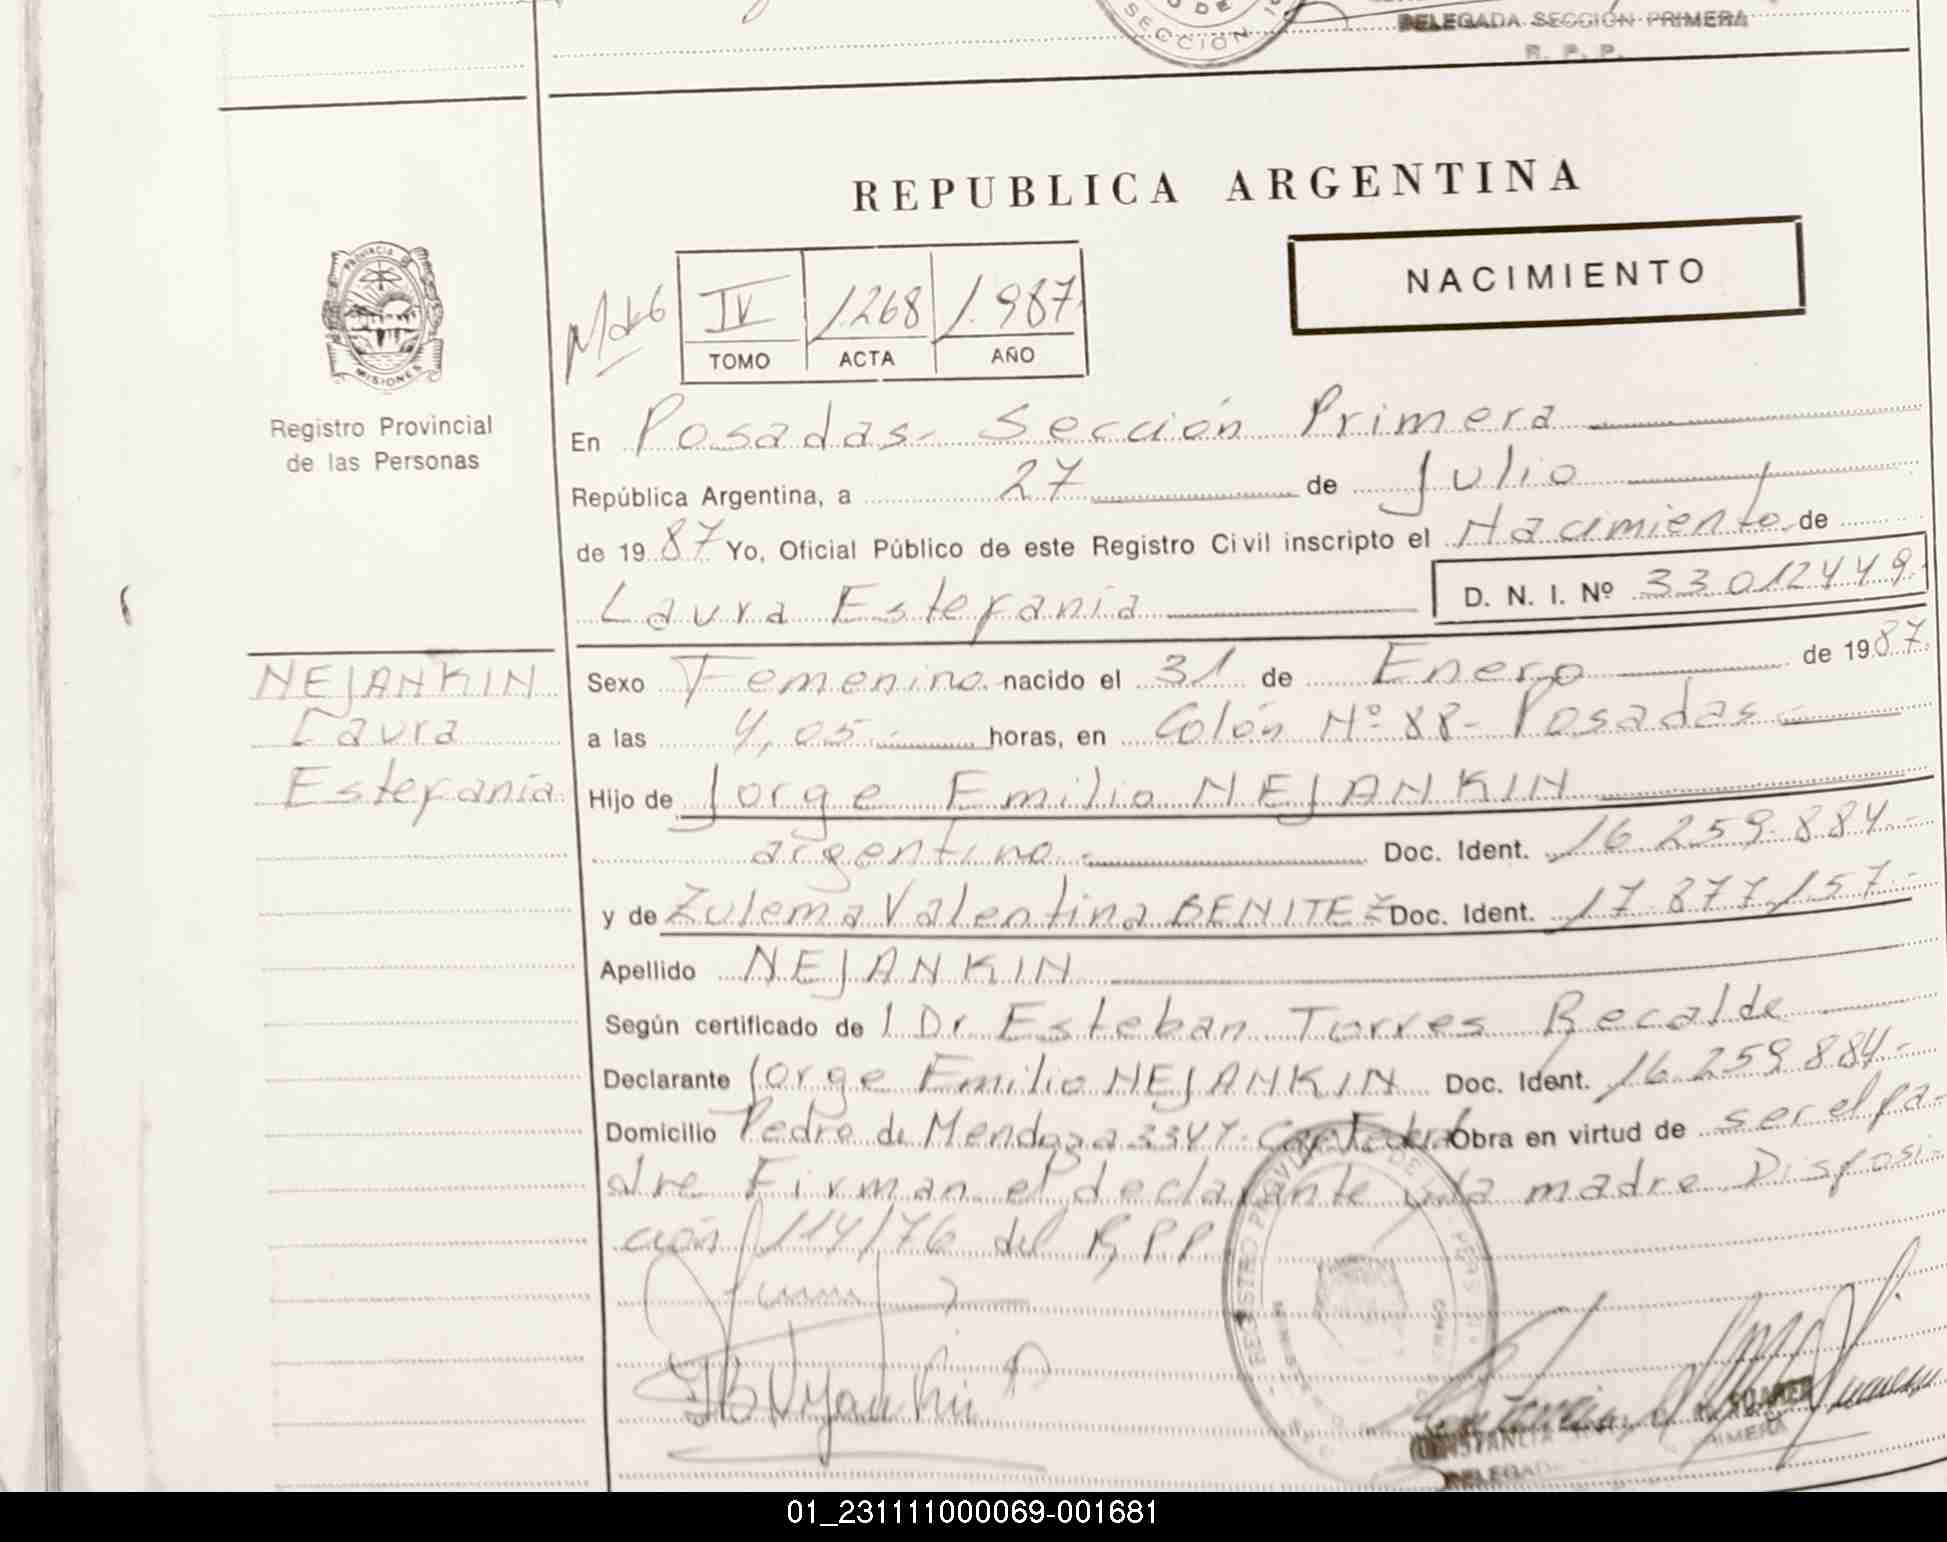 SECCION
DELEGADA SECCION PRIMERA
R. P. P.
REPUBLICA ARGENTINA
NACIMIENTO
PROVINCIA DE
MISIONES
IV 1.268 1.987
TOMO ACTA AÑO
Registro Provincial
de las Personas
En Posadas- Sección Primera
República Argentina, a 27 de Julio
de 1987 Yo, Oficial Público de este Registro Civil inscripto el Nacimiento de
Laura Estefanía D. N. I. Nº 33012449.-
NEJANKIN
Laura
Estefanía
Sexo Femenino nacido el 31 de Enero de 1987.
a las 4,05.- horas, en Colón Nº 88- Posadas.-
Hijo de Jorge Emilio NEJANKIN
argentino.- Doc. Ident. 16.259.884.-
y de Zulema Valentina BENITEZ- Doc. Ident. 17.877.157.-
Apellido NEJANKIN
Según certificado de l Dr Esteban Torres Recalde
Declarante Jorge Emilio NEJANKIN Doc. Ident. 16.259.884-
Domicilio Pedro de Mendoza 3347- Obra en virtud de ser el pa-
dre Firman el declarante y la madre Disposi-
ción 114/76 del RPP
REGISTRO
SOARER
DELEGADA
01_231111000069-001681